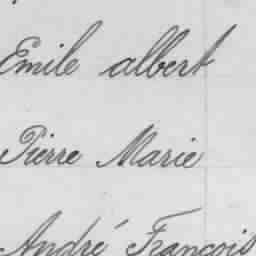 Emile albert
Pierre Marie
André François